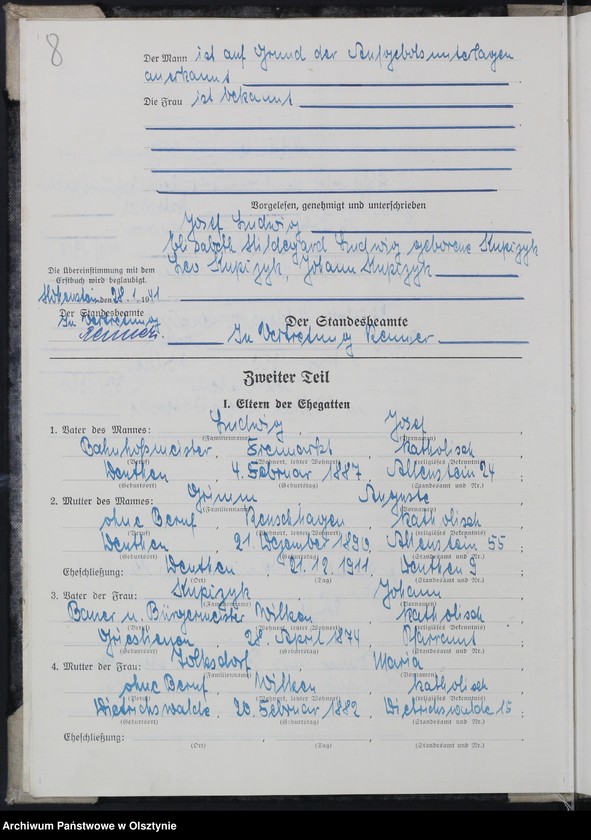 8
Der Mann ist auf Grund der Aufgebotsunterlagen
anerkannt
Die Frau ist bekannt
Vorgelesen, genehmigt und unterschrieben
Josef Ludwig
Hildegard Ludwig geborene
Leo Johann
Die Übereinstimmung mit dem
Erstbuch wird beglaubigt.
Hohenstein den 28. 1. 1941
Der Standesbeamte
In Vertretung
Renner.
Der Standesbeamte
In Vertretung Renner
Zweiter Teil
I. Eltern der Ehegatten
1. Vater des Mannes: Ludwig , Josef ,
(Familienname) (Vornamen)
Bahnhofsmeister , Freimarkt , katholisch
(Beruf) (Wohnort, letzter Wohnort) (religiöses Bekenntnis)
Deuthen , 4. Februar 1887 , Allenstein 24 ;
(Geburtsort) (Geburtstag) (Standesamt und Nr.)
2. Mutter des Mannes: Grimm , Auguste ,
(Familienname) (Vornamen)
ohne Beruf , , katholisch ,
(Beruf) (Wohnort, letzter Wohnort) (religiöses Bekenntnis)
Deuthen , 21. Dezember 1890 , Allenstein 55 ;
(Geburtsort) (Geburtstag) (Standesamt und Nr.)
Eheschließung: Deuthen , 21.12.1911 , Deuthen 9 ;
(Ort) (Tag) (Standesamt und Nr.)
3. Vater der Frau: , Johann ,
(Familienname) (Vornamen)
Bauer u. Bürgermeister Wilken , katholisch ,
(Beruf) (Wohnort, letzter Wohnort) (religiöses Bekenntnis)
Grieslienen , 28. April 1874 , Pfarramt ;
(Geburtsort) (Geburtstag) (Standesamt und Nr.)
4. Mutter der Frau: Volksdorf , Maria ,
(Familienname) (Vornamen)
ohne Beruf , Wilken , katholisch ,
(Beruf) (Wohnort, letzter Wohnort) (religiöses Bekenntnis)
Dietrichswalde , 20. Februar 1882 , Dietrichswalde 15 ;
(Geburtsort) (Geburtstag) (Standesamt und Nr.)
Eheschließung: , , ;
(Ort) (Tag) (Standesamt und Nr.)
Archiwum Państwowe w Olsztynie